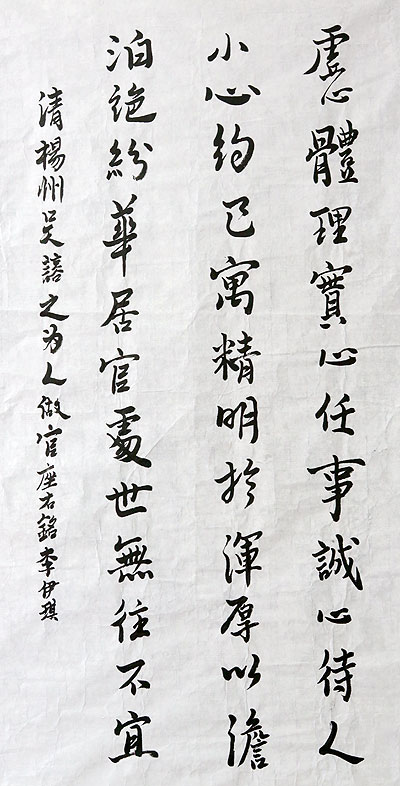 虛心體理實心任事誠心待人
小心約己寓精明於渾厚以澹
泊絕紛華居官處世無往不宜
清楊州吴諮之为人做官座右銘李伊琪